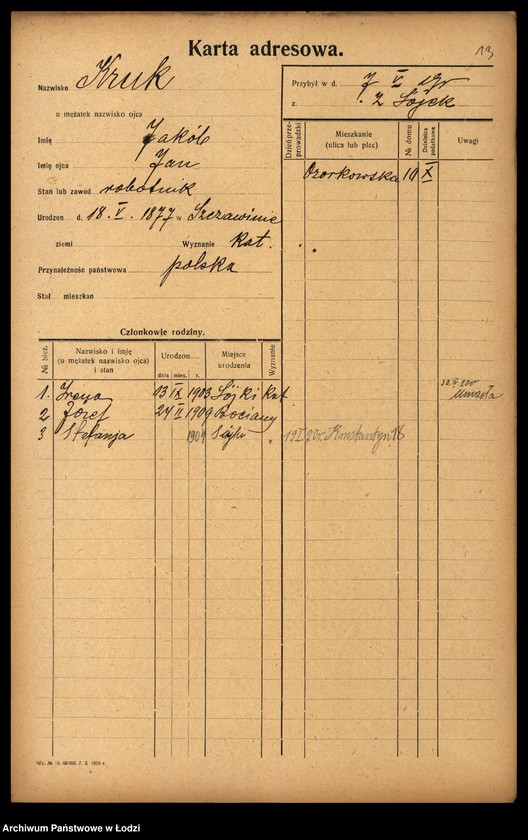 Karta adresowa.
13
Nazwisko Kruk
u mężatek nazwisko ojca
Imię Jakób
Imię ojca Jan
Stan lub zawód robotnik
Urodzon d. 18. V. 1877 w Szczawinie
ziemi Wyznanie kat.
Przynależność państwowa polska
Stał mieszkan
Przybył w d. 7 V 19r
z. z Sójek
Dzień przeprowadzki
Mieszkanie (ulica lub plac)
№ domu
Dzielnica podatkowa
Uwagi
Ozorkowska 10 X
Członkowie rodziny.
№ bież.
Nazwisko i imię (u mężatek nazwisko ojca) i stan
Urodzon
data mies. r.
Miejsce urodzenia
Wyznanie
1. 13 IX 1903 Sójki kat.
umarła
2 Józef 24 II 1909 Bociany
3 Stefanja 1901 Sójki " 19 I 20r. Konstantyn. 18
Archiwum Państwowe w Łodzi